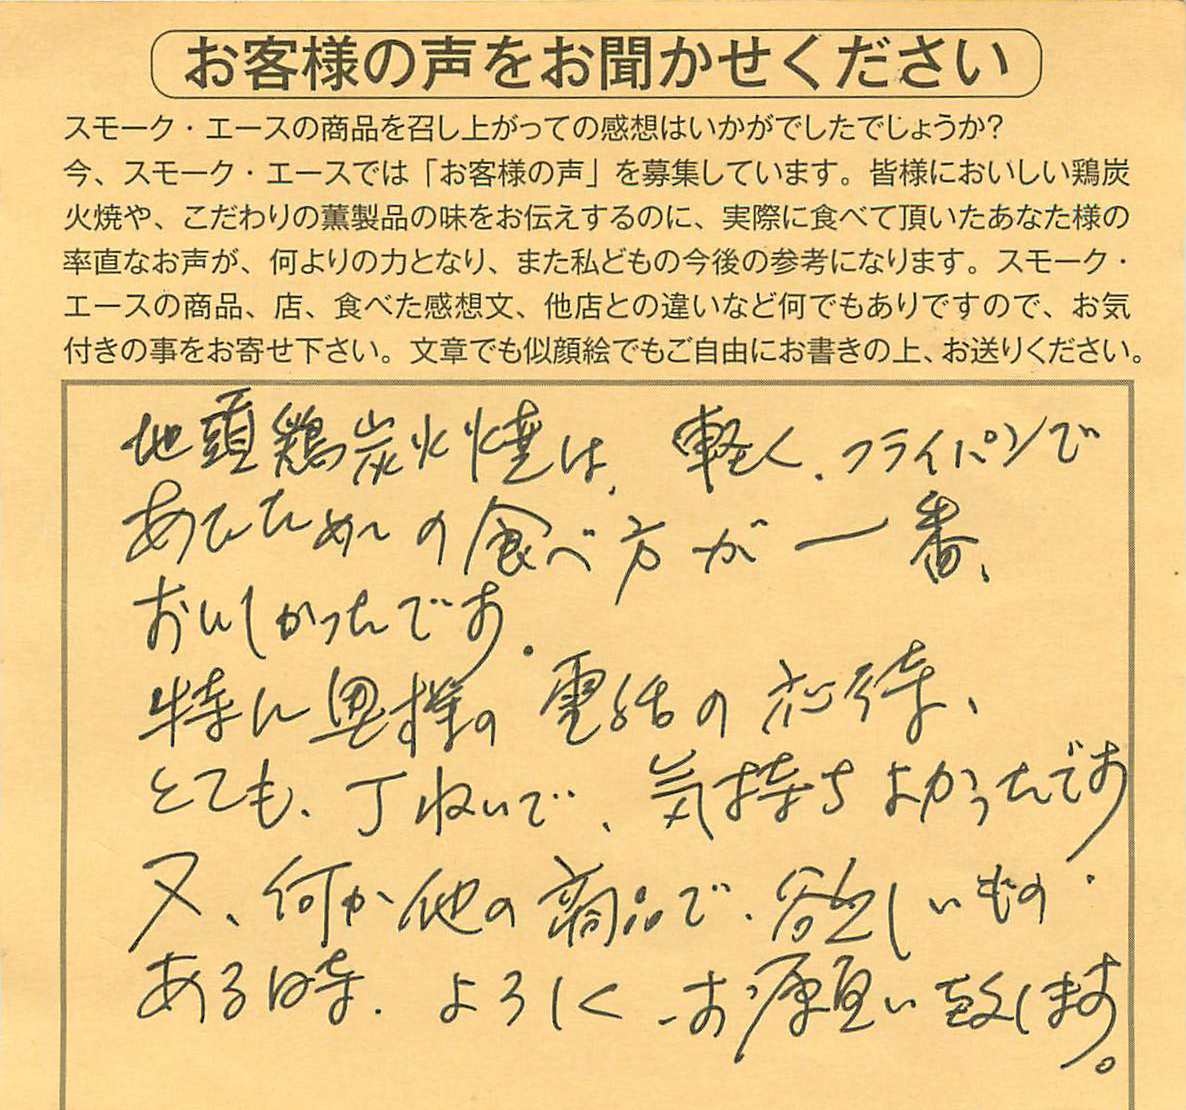 お客様の声をお聞かせください
スモーク・エースの商品を召し上がっての感想はいかがでしたでしょうか？
今、スモーク・エースでは「お客様の声」を募集しています。皆様においしい鶏炭
火焼や、こだわりの薫製品の味をお伝えするのに、実際に食べて頂いたあなた様の
率直なお声が、何よりの力となり、また私どもの今後の参考になります。スモーク・
エースの商品、店、食べた感想文、他店との違いなど何でもありですので、お気
付きの事をお寄せ下さい。文章でも似顔絵でもご自由にお書きの上、お送りください。
地頭鶏炭火焼は、軽く、フライパンで
あたためての食べ方が一番、
おいしかったです。
特に奥様の電話の応待、
とても、丁ねいで、気持ちよかったです
又、何か他の商品で、欲しいもの
ある時、よろしくお願い致します。